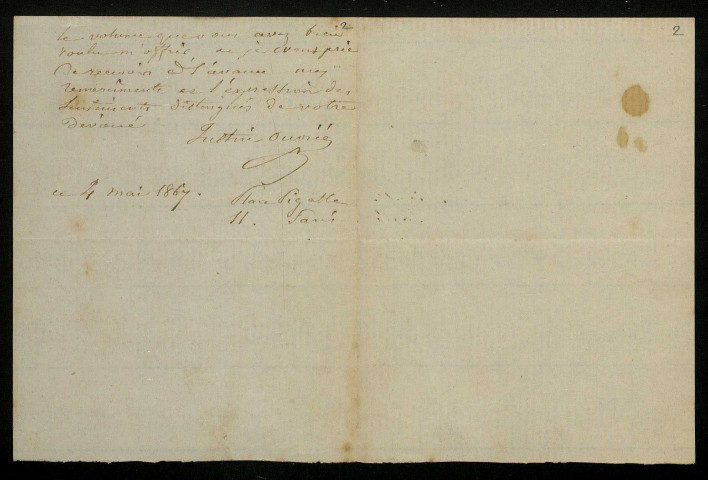 2
2
le volume que vous avez bien
voulu m'offrir et je vous prie
de recevoir à l'avance mes
remerciments et l'expression des
sentiments distingués de votre
dévoué
Justin Ouvrié
ce 4 mai 1867.
Place Pigalle
11. Paris